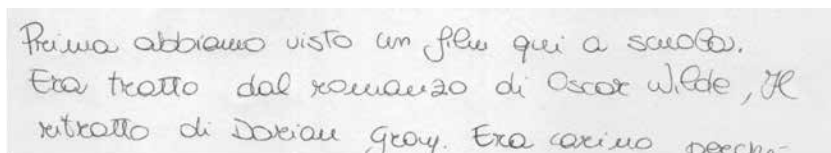 Prima abbiamo visto un film qui a scuola.
Era tratto dal romanzo di Oscar Wilde, Il
ritratto di Dorian Gray. Era carino perché